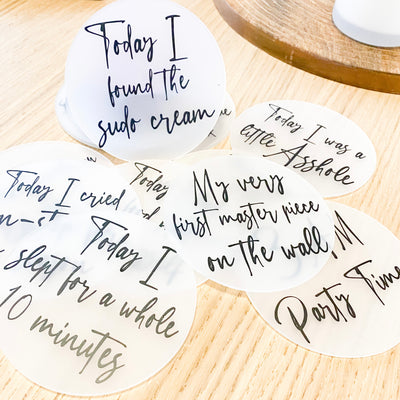 Today I
found the
sudo cream
Today I was a
little Asshole
Today I cried
Today
My very
first master piece
on the wall
Today I
slept for a whole
10 minutes
M
Party Time